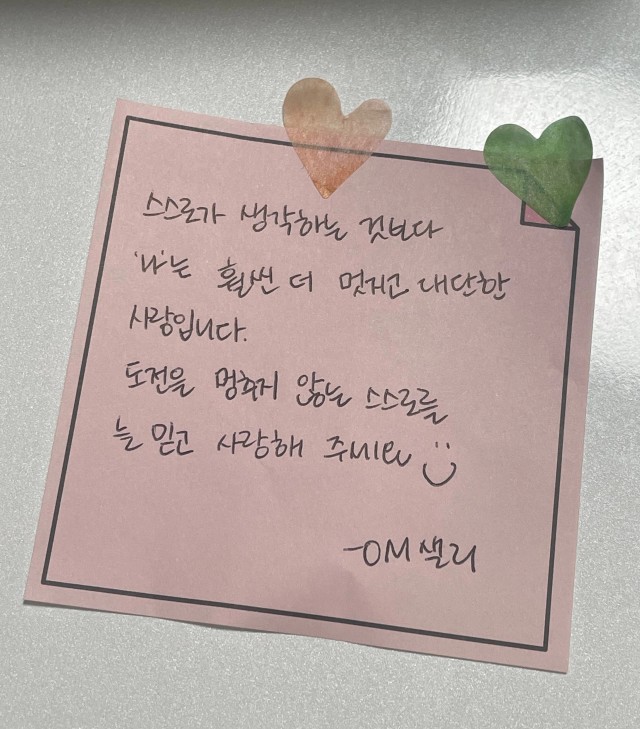 스스로가 생각하는 것보다
'나'는 훨씬 더 멋지고 대단한
사람입니다.
도전을 멈추지 않는 스스로를
늘 믿고 사랑해 주세요
-OM샐리